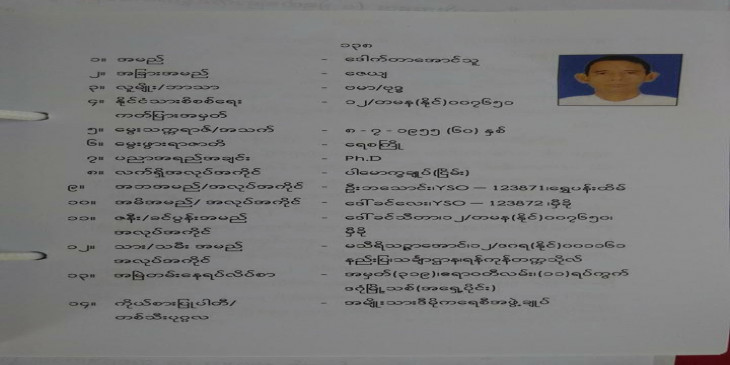 ၁၃၈
၁။ အမည် - ဒေါက်တာအောင်သူ
၂။ အခြားအမည် - ဇေယျ
၃။ လူမျိုး/ဘာသာ - ဗမာ/ဗုဒ္ဓ
၄။ နိုင်ငံသားစိစစ်ရေး - ၁၂/တမန(နိုင်)၀၀၇၆၅၁
ကတ်ပြားအမှတ်
၅။ မွေးသက္ကရာဇ်/အသက် - ၈ - ၇ - ၁၉၅၅ (၆၀) နှစ်
၆။ မွေးဖွားရာဇာတိ - ရေစကြို
၇။ ပညာအရည်အချင်း - Ph.D
၈။ လက်ရှိအလုပ်အကိုင် - ပါမောက္ခချုပ်(ငြိမ်း)
၉။ အဘအမည်/အလုပ်အကိုင် - ဦးဘသောင်း၊YSO — 123871၊ရွှေပန်းထိမ်
၁၀။ အမိအမည်/ အလုပ်အကိုင် - ဒေါ်ခင်လေး၊YSO — 123872 ၊မှီခို
၁၁။ ဇနီး/ခင်ပွန်းအမည် - ဒေါ်ခင်သီတာ၊၁၂/တမန(နိုင်)၀၀၇၆၅၀၊
အလုပ်အကိုင် မှီခို
၁၂။ သား/သမီး အမည် - မသီရိသဥ္ဇာအောင်၊၁၂/ဒဂရ(နိုင်)၀၀၁၁၆၁
အလုပ်အကိုင် နည်းပြ၊သင်္ချာဌာန၊ရန်ကုန်တက္ကသိုလ်
၁၃။ အမြဲတမ်းနေရပ်လိပ်စာ - အမှတ်(၃၁၉)၊ဧရာဝတီလမ်း၊(၁၁)ရပ်ကွက်
ဒဂုံမြို့သစ်(အရှေ့ပိုင်း)
၁၄။ ကိုယ်စားပြုပါတီ/ - အမျိုးသားဒီမိုကရေစီအဖွဲ့ချုပ်
တစ်သီးပုဂ္ဂလ